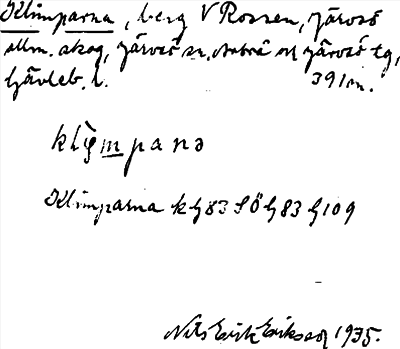 Klimparna, berg V Rossen, Järvsö
allm. skog, Järvsö sn, Arbrå och Järvsö tg,
Gävleb. l. 391 m.
klimpanə
Klimparna kg 83 SÖ G 83 G 109
Nils Erik Eriksson 1935.